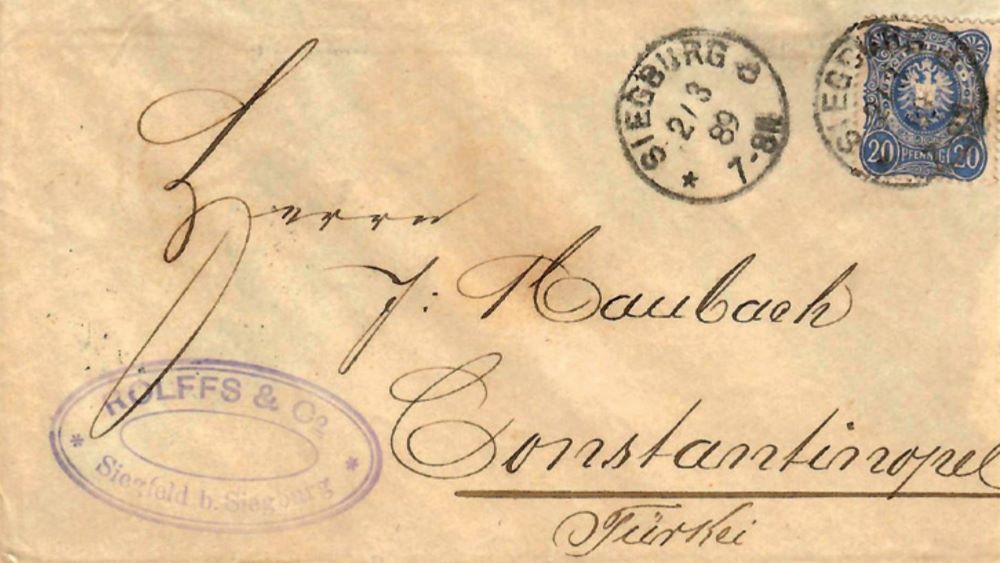 SIEGBURG
2/3
89
7-8N.
SIEGBURG
20 PFENNIG 20
Herrn
J: Maubach
Constantinopel
Türkei
ROLFFS & Cº
Siegfeld b. Siegburg